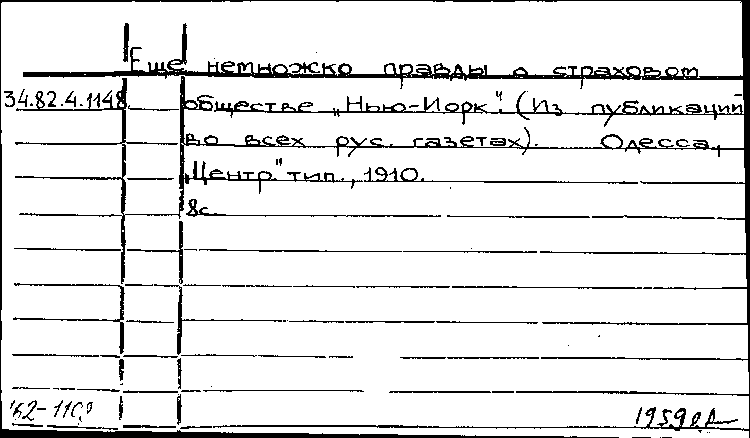 Еще немножко правды о страховом
34.82.4.1148 обществе „Нью-Йорк". (Из публикаций
во всех рус. газетах). Одесса,
„Центр." тип., 1910.
8с.